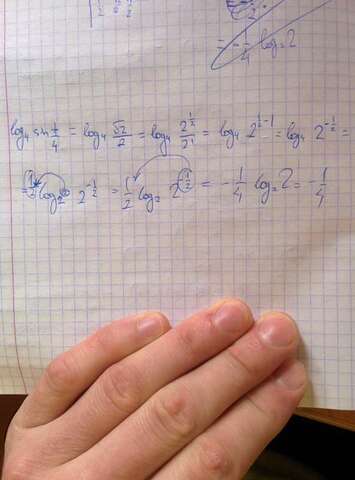 = -1/4 log₂2
log₄ sin π/4 = log₄ √2/2 = log₄ 2^(1/2)/2¹ = log₄ 2^(1/2-1) = log₄ 2^(-1/2) =
log₂ 2^(-1/2) = 1/2 log₂ 2^(-1/2) = -1/4 log₂2 = -1/4